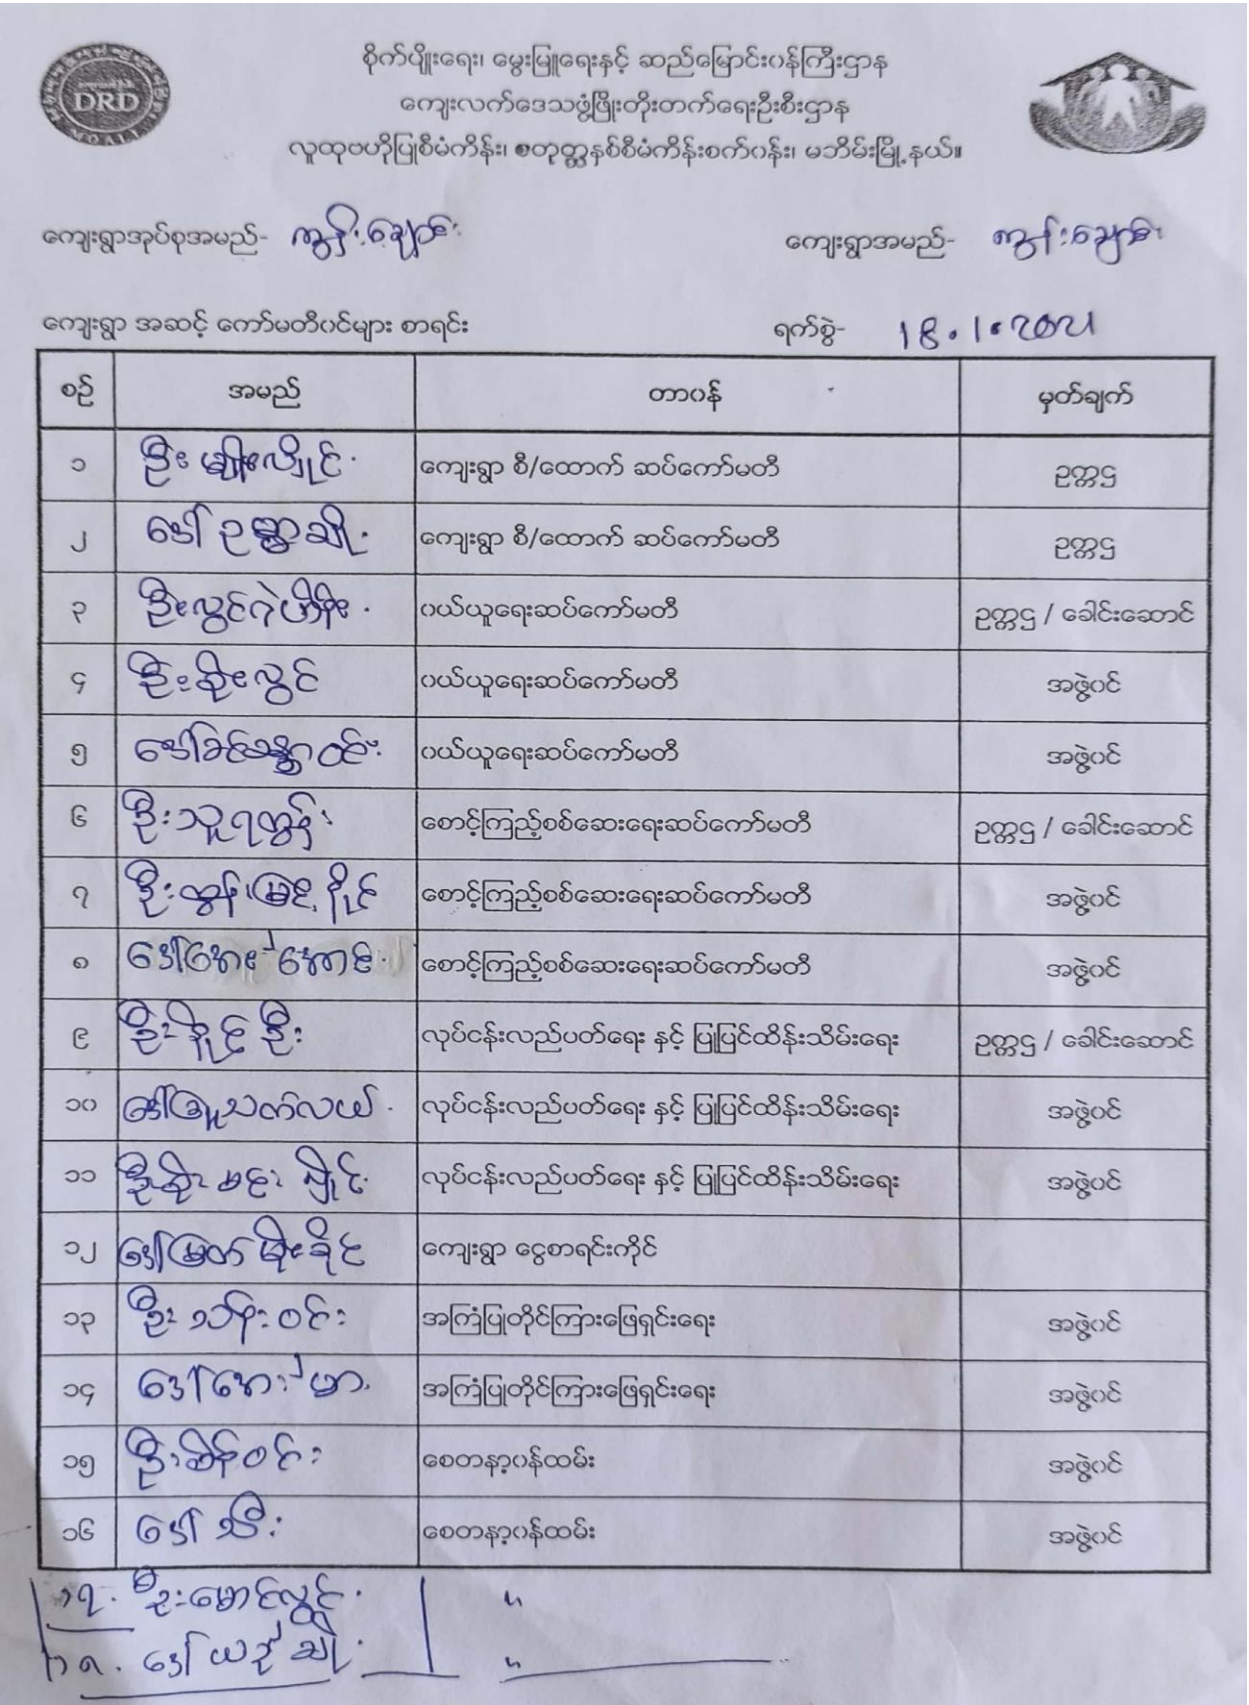 DRD
စိုက်ပျိုးရေး၊ မွေးမြူရေးနှင့် ဆည်မြောင်းဝန်ကြီးဌာန
ကျေးလက်ဒေသဖွံ့ဖြိုးတိုးတက်ရေးဦးစီးဌာန
လူထုဗဟိုပြုစီမံကိန်း၊ စတုတ္ထနှစ်စီမံကိန်းစက်ဝန်း၊ မဘိမ်းမြို့နယ်။
ကျေးရွာအုပ်စုအမည်- ကျွန်းချောင်း ကျေးရွာအမည်- ကျွန်းချောင်း
ကျေးရွာ အဆင့် ကော်မတီဝင်များ စာရင်း ရက်စွဲ- 18.1.2021
စဉ် အမည် တာဝန် မှတ်ချက်
၁ ဦးမျိုးလှိုင် ကျေးရွာ စီ/ထောက် ဆပ်ကော်မတီ ဥက္ကဌ
၂ ဒေါ်ဥမ္မာချို ကျေးရွာ စီ/ထောက် ဆပ်ကော်မတီ ဥက္ကဌ
၃ ဝယ်ယူရေးဆပ်ကော်မတီ ဥက္ကဌ / ခေါင်းဆောင်
၄ ဦးစိုးလွင် ဝယ်ယူရေးဆပ်ကော်မတီ အဖွဲ့ဝင်
၅ ဒေါ်ခင်သန္တာဝင်း ဝယ်ယူရေးဆပ်ကော်မတီ အဖွဲ့ဝင်
၆ ဦးသူရထွန်း စောင့်ကြည့်စစ်ဆေးရေးဆပ်ကော်မတီ ဥက္ကဌ / ခေါင်းဆောင်
၇ ဦးထွန်းမြင့်နိုင် စောင့်ကြည့်စစ်ဆေးရေးဆပ်ကော်မတီ အဖွဲ့ဝင်
၈ ဒေါ်အေးအေးာင် စောင့်ကြည့်စစ်ဆေးရေးဆပ်ကော်မတီ အဖွဲ့ဝင်
၉ ဦးနိုင်ဦး လုပ်ငန်းလည်ပတ်ရေး နှင့် ပြုပြင်ထိန်းသိမ်းရေး ဥက္ကဌ / ခေါင်းဆောင်
၁၀ ဒေါ်ဖြူသက်လယ် လုပ်ငန်းလည်ပတ်ရေး နှင့် ပြုပြင်ထိန်းသိမ်းရေး အဖွဲ့ဝင်
၁၁ လုပ်ငန်းလည်ပတ်ရေး နှင့် ပြုပြင်ထိန်းသိမ်းရေး အဖွဲ့ဝင်
၁၂ ဒေါ်မြတ်မိုးခိုင် ကျေးရွာ ငွေစာရင်းကိုင်
၁၃ ဦးသိန်းဝင်း အကြံပြုတိုင်ကြားဖြေရှင်းရေး အဖွဲ့ဝင်
၁၄ ဒေါ်အေးမာ အကြံပြုတိုင်ကြားဖြေရှင်းရေး အဖွဲ့ဝင်
၁၅ ဦးစိန်ဝင်း စေတနာ့ဝန်ထမ်း အဖွဲ့ဝင်
၁၆ ဒေါ်သီး စေတနာ့ဝန်ထမ်း အဖွဲ့ဝင်
၁၇. ဦးမောင်လွင် "
၁၈. ဒေါ်ယဉ်ချို "